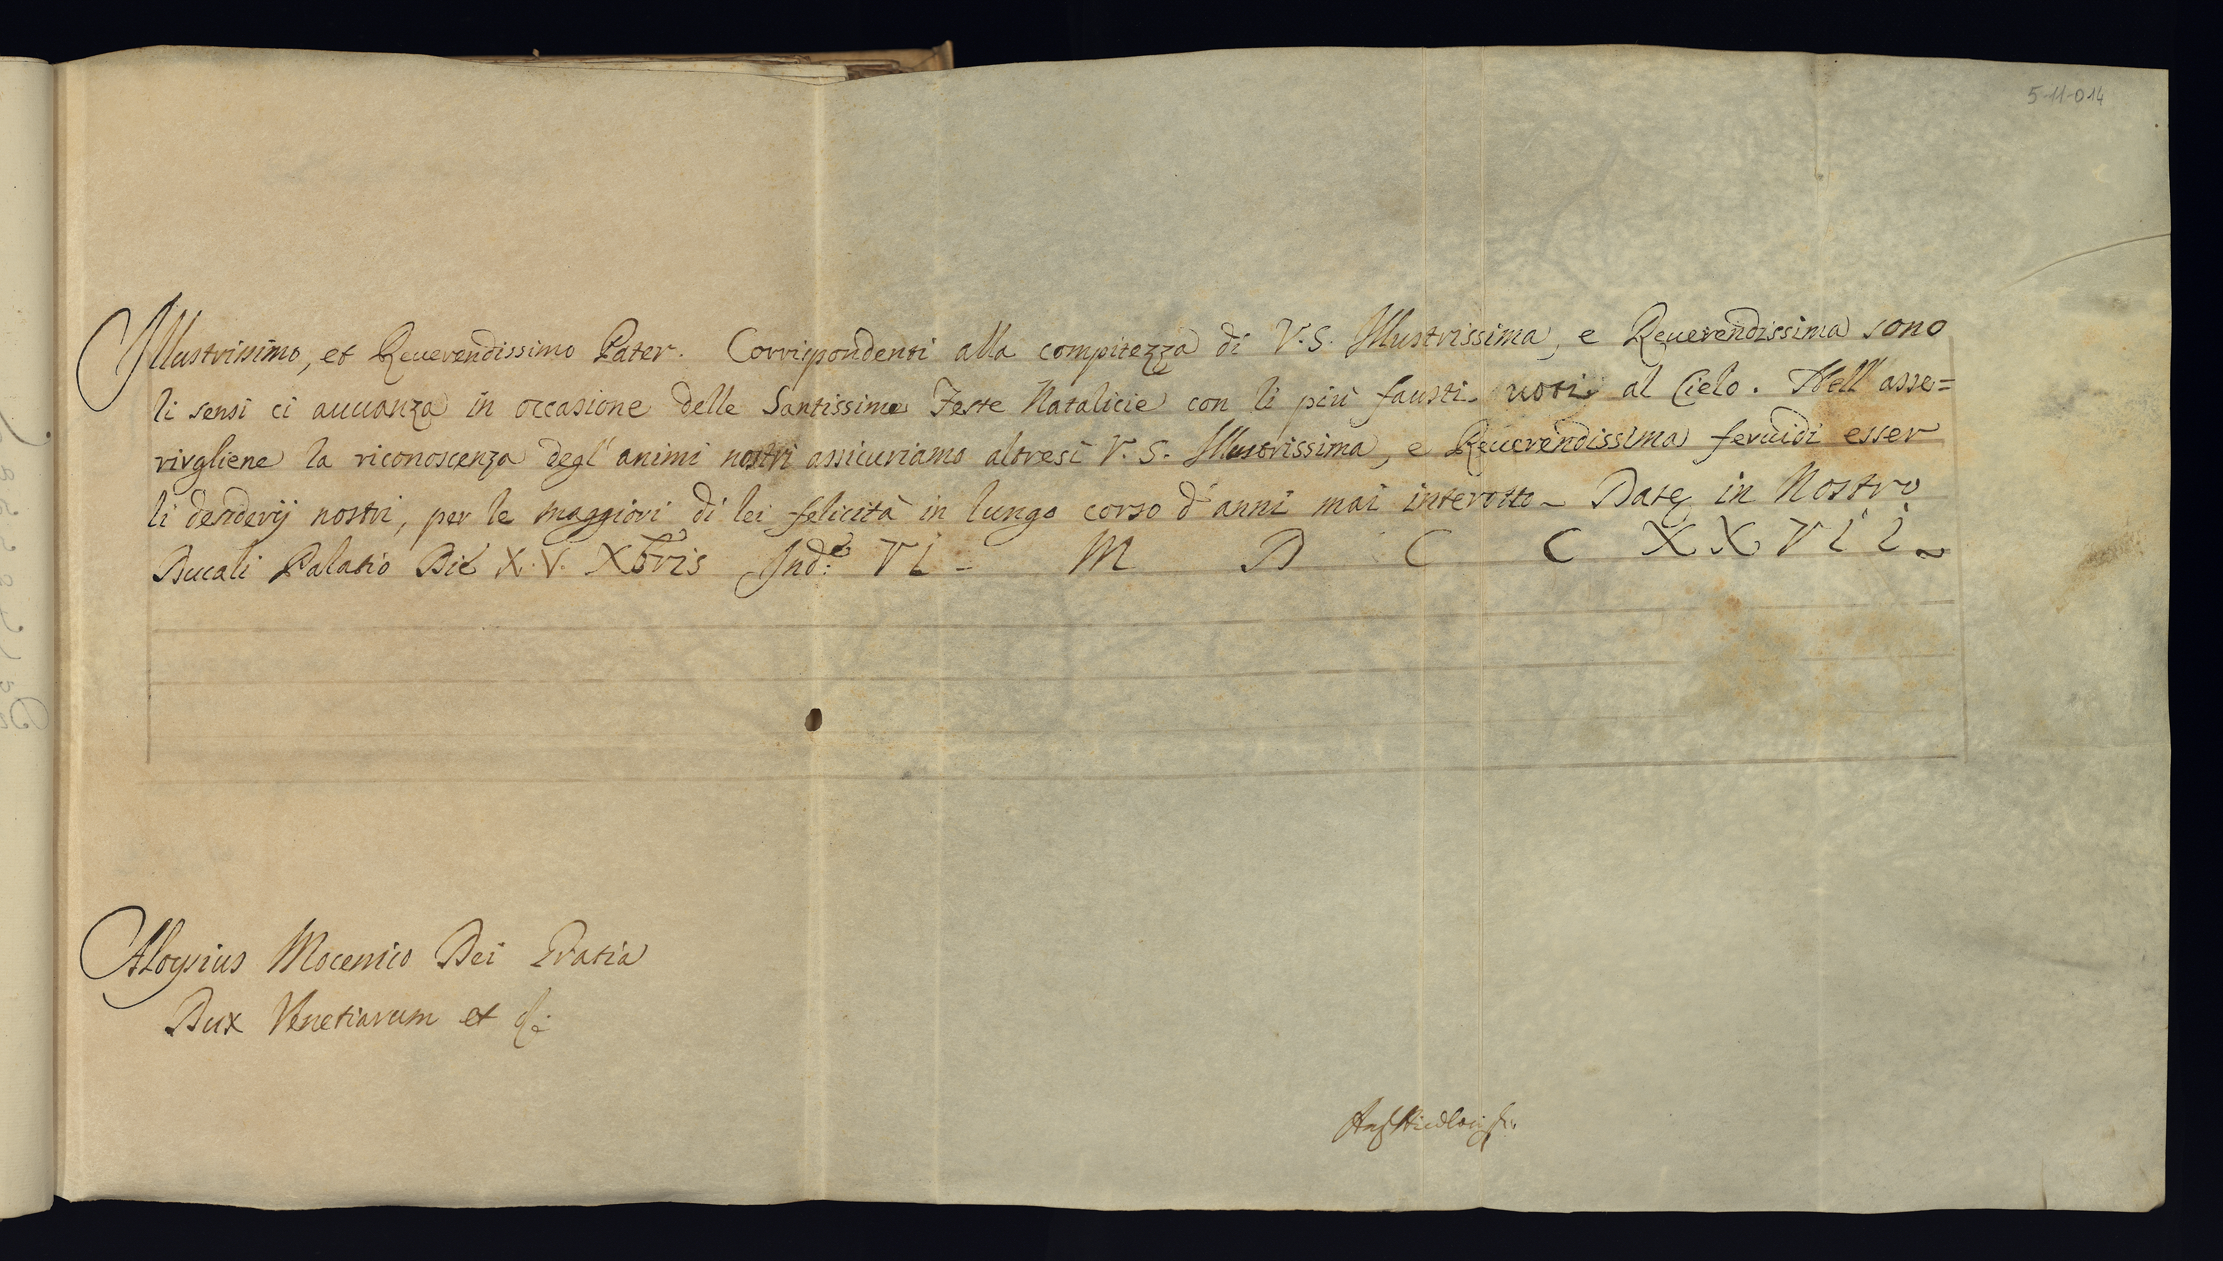 5-11-014
Illustrissimo, et Reuerendissimo Pater. Corrispondenti alla compitezza di V.S. Illustrissima, e Reuerendissima sono
li sensi ci auuanza in occasione delle Santissime Feste Natalicie con li più fausti uoti al Cielo. Nell' asse=
rirgliene la riconoscenza degl' animi nostri assicuriamo altresì V.S. Illustrissima, e Reuerendissima feruidi esser
li desiderij nostri, per le maggiori di lei felicità in lungo corso d' anni mai interotto. Datę in Nostro
Ducali Palatio Die X.V. Xbris Ind:e VI - M D C C XXVII
Aloysius Mocenico Dei Gratia
Dux Venetiarum et